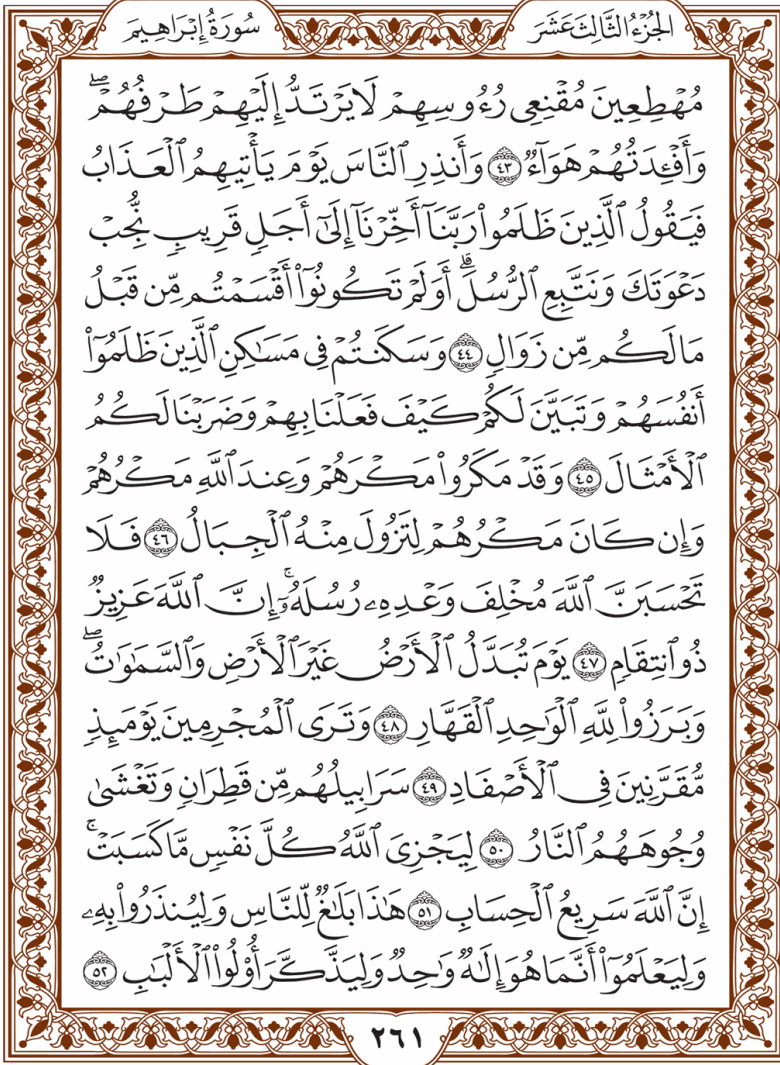 الجُزْءُ الثَّالِثَ عَشَرَ
سُورَةُ إِبْرَاهِيمَ
مُهْطِعِينَ مُقْنِعِي رُءُوسِهِمْ لَا يَرْتَدُّ إِلَيْهِمْ طَرْفُهُمْۖ
وَأَفْـِٔدَتُهُمْ هَوَآءٌ ٤٣ وَأَنذِرِ ٱلنَّاسَ يَوْمَ يَأْتِيهِمُ ٱلْعَذَابُ
فَيَقُولُ ٱلَّذِينَ ظَلَمُوا۟ رَبَّنَآ أَخِّرْنَآ إِلَىٰٓ أَجَلٍ قَرِيبٍ نُّجِبْ
دَعْوَتَكَ وَنَتَّبِعِ ٱلرُّسُلَۗ أَوَلَمْ تَكُونُوٓا۟ أَقْسَمْتُم مِّن قَبْلُ
مَا لَكُم مِّن زَوَالٍ ٤٤ وَسَكَنتُمْ فِي مَسَٰكِنِ ٱلَّذِينَ ظَلَمُوٓا۟
أَنفُسَهُمْ وَتَبَيَّنَ لَكُمْ كَيْفَ فَعَلْنَا بِهِمْ وَضَرَبْنَا لَكُمُ
ٱلْأَمْثَالَ ٤٥ وَقَدْ مَكَرُوا۟ مَكْرَهُمْ وَعِندَ ٱللَّهِ مَكْرُهُمْ
وَإِن كَانَ مَكْرُهُمْ لِتَزُولَ مِنْهُ ٱلْجِبَالُ ٤٦ فَلَا
تَحْسَبَنَّ ٱللَّهَ مُخْلِفَ وَعْدِهِۦ رُسُلَهُۥٓۚ إِنَّ ٱللَّهَ عَزِيزٌ
ذُو ٱنتِقَامٍ ٤٧ يَوْمَ تُبَدَّلُ ٱلْأَرْضُ غَيْرَ ٱلْأَرْضِ وَٱلسَّمَٰوَٰتُۖ
وَبَرَزُوا۟ لِلَّهِ ٱلْوَٰحِدِ ٱلْقَهَّارِ ٤٨ وَتَرَى ٱلْمُجْرِمِينَ يَوْمَئِذٍ
مُّقَرَّنِينَ فِي ٱلْأَصْفَادِ ٤٩ سَرَابِيلُهُم مِّن قَطِرَانٍ وَتَغْشَىٰ
وُجُوهَهُمُ ٱلنَّارُ ٥٠ لِيَجْزِيَ ٱللَّهُ كُلَّ نَفْسٍ مَّا كَسَبَتْۚ
إِنَّ ٱللَّهَ سَرِيعُ ٱلْحِسَابِ ٥١ هَٰذَا بَلَٰغٌ لِّلنَّاسِ وَلِيُنذَرُوا۟ بِهِۦ
وَلِيَعْلَمُوٓا۟ أَنَّمَا هُوَ إِلَٰهٌ وَٰحِدٌ وَلِيَذَّكَّرَ أُو۟لُوا۟ ٱلْأَلْبَٰبِ ٥٢
٢٦١